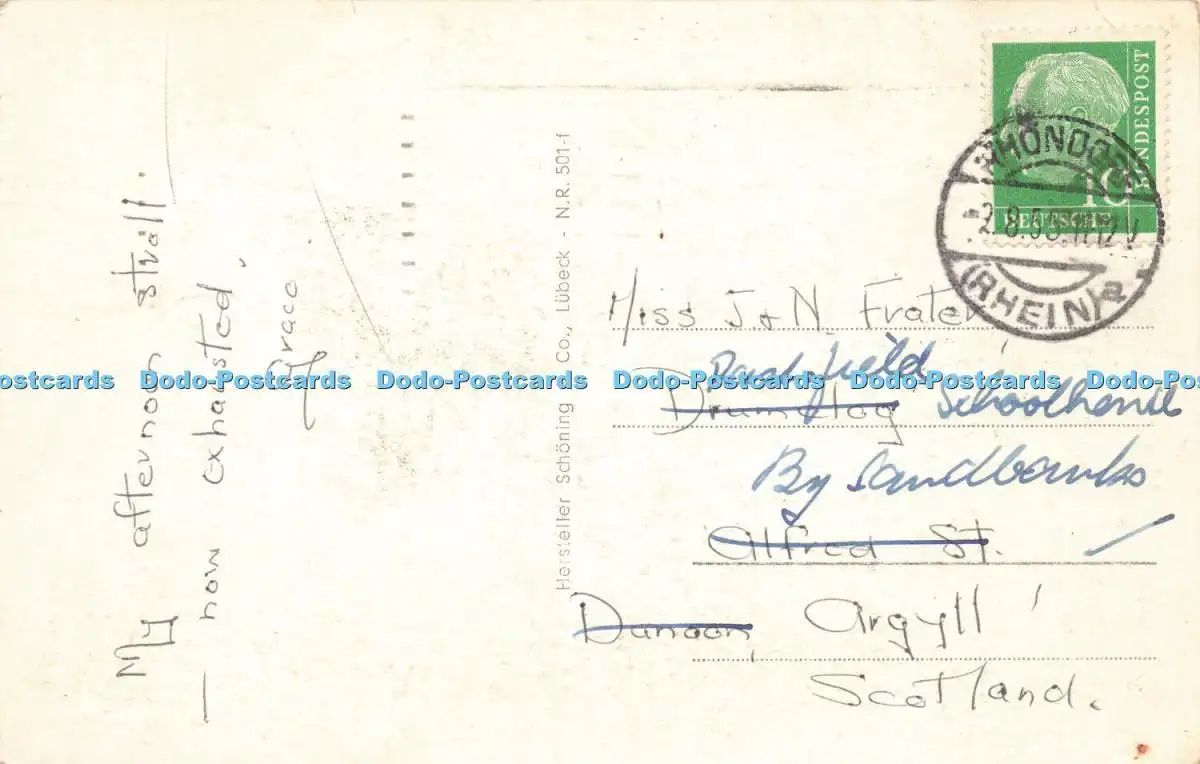 My afternoon stroll.
— now exhausted.
Grace.
Hersteller Schöning Co., Lübeck - N.R. 501-f
DEUTSCHE
BUNDESPOST
10
RHÖNDORF
(RHEIN) a
Miss J & N Frater
Drumclog Schoolhouse
By Sandbanks
Alfred St.
Dunoon, Argyll
Scotland.
Dodo-Postcards Dodo-Postcards Dodo-Postcards Dodo-Postcards Dodo-Postcards